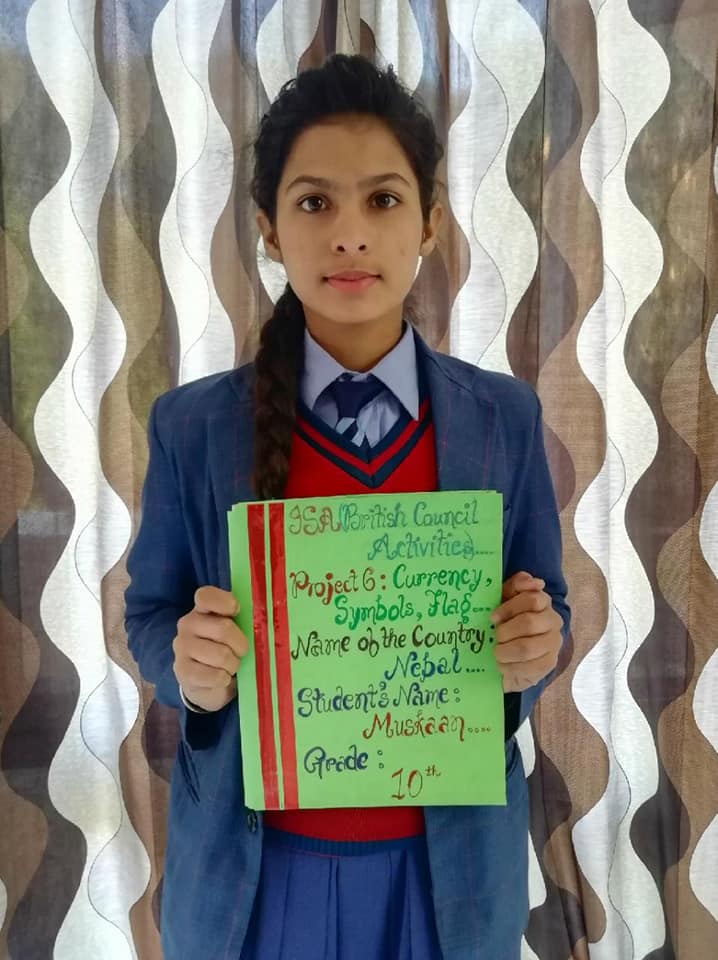 ISA British Council
Activities....
Project 6: Currency,
Symbols, Flag...
Name of the Country:
Nepal....
Student's Name:
Muskaan....
Grade:
10th